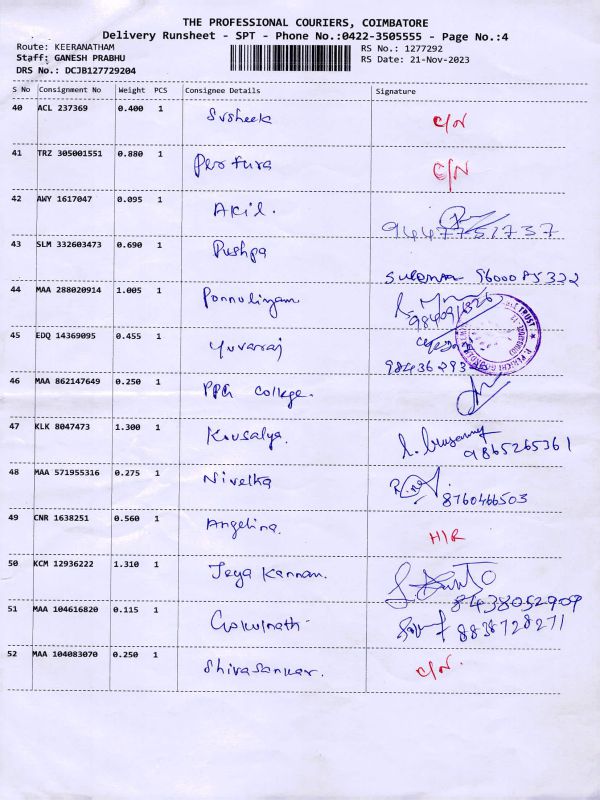 THE PROFESSIONAL COURIERS, COIMBATORE
Delivery Runsheet - SPT - Phone No.:0422-3505555 - Page No.:4
Route: KEERANATHAM RS No.: 1277292
Staff: GANESH PRABHU RS Date: 21-Nov-2023
DRS No.: DCJB127729204
S No Consignment No Weight PCS Consignee Details Signature
40 ACL 237369 0.400 1 C/N
41 TRZ 305001551 0.880 1 C/N
42 AWY 1617047 0.095 1 Akil. 9447751737
43 SLM 332603473 0.690 1 Pushpa
44 MAA 288020914 1.005 1 Ponnulingam
45 EDQ 14369095 0.455 1 Yuvaraj
46 MAA 862147649 0.250 1 PPG College.
47 KLK 8047473 1.300 1 Kousalya. 9865265361
48 MAA 571955316 0.275 1 Nivetha 8760466503
49 CNR 1638251 0.560 1 Angelina. H/R
50 KCM 12936222 1.310 1 Jeya Kannan. 8438052909
51 MAA 104616820 0.115 1 Gokulnath 8838728271
52 MAA 104083070 0.250 1 Shivasankar. C/N.